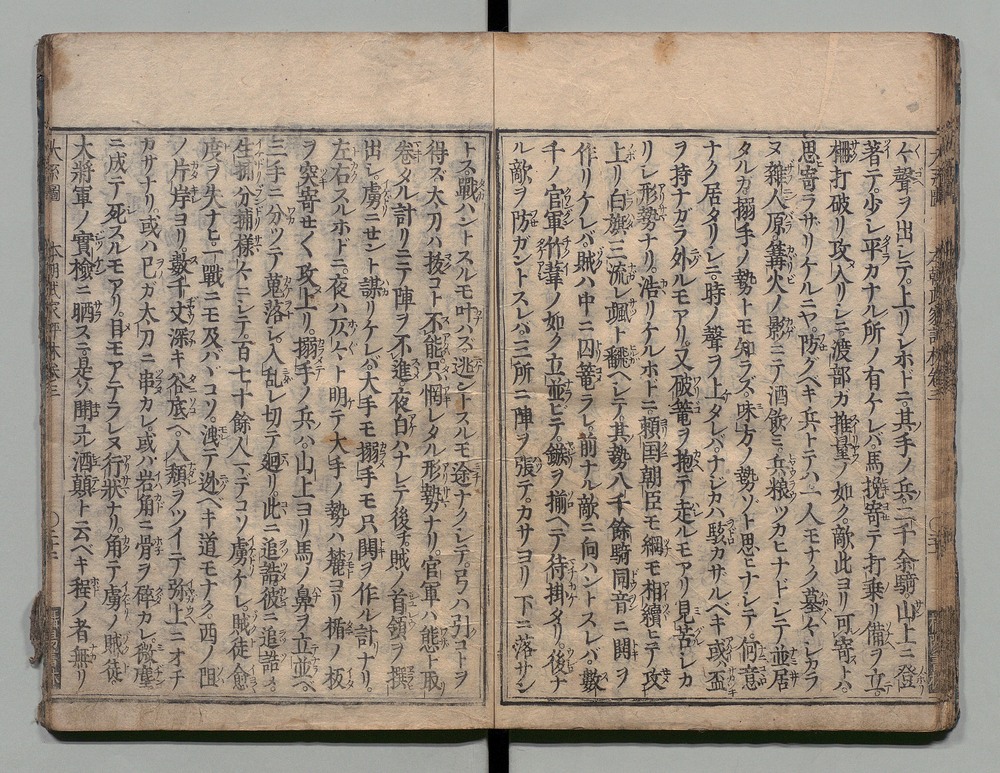 々聲ヲ出シテ。上リシホドニ。其手ノ兵。二千余騎。山上ニ登
著テ。少シ平カナル所ノ有ケレバ。馬挽寄テ打乘リ。備ヲ立。
柵打破リ攻入リシニ。渡部ガ推量ノ如ク。敵此ヨリ可寄トハ。
思寄ラザリケルニヤ。防クベキ兵トテハ。一人モナク。墓々シカラ
ヌ雜人原。篝火ノ影ニテ。酒飲ミ。兵粮ツカヒナドシテ。並居
タルガ。搦手ノ勢トモ知ラズ。味方ノ勢ゾト思ヒナシテ。何意
ナク居タリシニ。時ノ聲ヲ上タレバ。ナジカハ駭カザルベキ。或ハ盃
ヲ持ナガラ外ルモアリ。又破篭ヲ抱テ走ルモアリ。見苦シカ
リシ形勢ナリ。浩リケルホドニ。頼国朝臣モ。綱モ相續ヒテ攻
上リ。白旗三流レ颯ト飜ヘシテ。其勢八千餘騎。同音ニ鬨ヲ
作リケレバ。賊ハ中ニ囚篭ラレ。前ナル敵ニ向ハントスレバ。數
千ノ官軍。竹葦ノ如ク立並ビテ。鏃ヲ揃ヘテ待掛タリ。後ナ
ル敵ヲ防ガントスレバ。三所ニ陣ヲ張テ。カサヨリ下ニ落サン
トス。戰ハントスルモ叶ハズ。逃ントスルモ途ナクシテ。弓ハ引コトヲ
得ズ。太刀ハ拔コト不能。只惘レタル形勢ナリ。官軍ハ態ト取
卷タル計リニテ。陣ヲ不進。夜白ハナシテ後チ。賊ノ首領ヲ撰
出シ。虜ニセント謀リケレバ。大手モ搦手モ。只鬨ヲ作ル計ナリ。
左右スルホドニ。夜ハ仄々ト明テ。大手ノ勢ハ麓ヨリ楯ノ板
ヲ突寄せく攻上リ。搦手ノ兵ハ。山上ヨリ馬ノ鼻ヲ立並ベ。
三手ニ分ツテ蒐落シ。入乱レ切テ廻リ。此ニ追詰彼ニ追詰メ。
生捕分捕様々ニシテ。百七十餘人マデコソ虜ケレ。賊徒愈
度ヲ失ナヒ。一戰ニモ及バヾコソ。洩テ迯ベキ道モナク。西ノ岨
ノ片岸ヨリ。數千丈深キ谷底ヘ。人頽ヲツイテ弥上ニオチ
カサナリ。或ハ己ガ太刀ニ串カレ。或ハ岩角ニ骨ヲ碎カレ。微塵
ニ成テ死スルモアリ。目モアテラレヌ行狀ナリ。角テ虜ノ賊徒。
大將軍ノ實檢ニ晒スニ。是ゾ聞元酒顛ト云ベキ程ノ者無リ